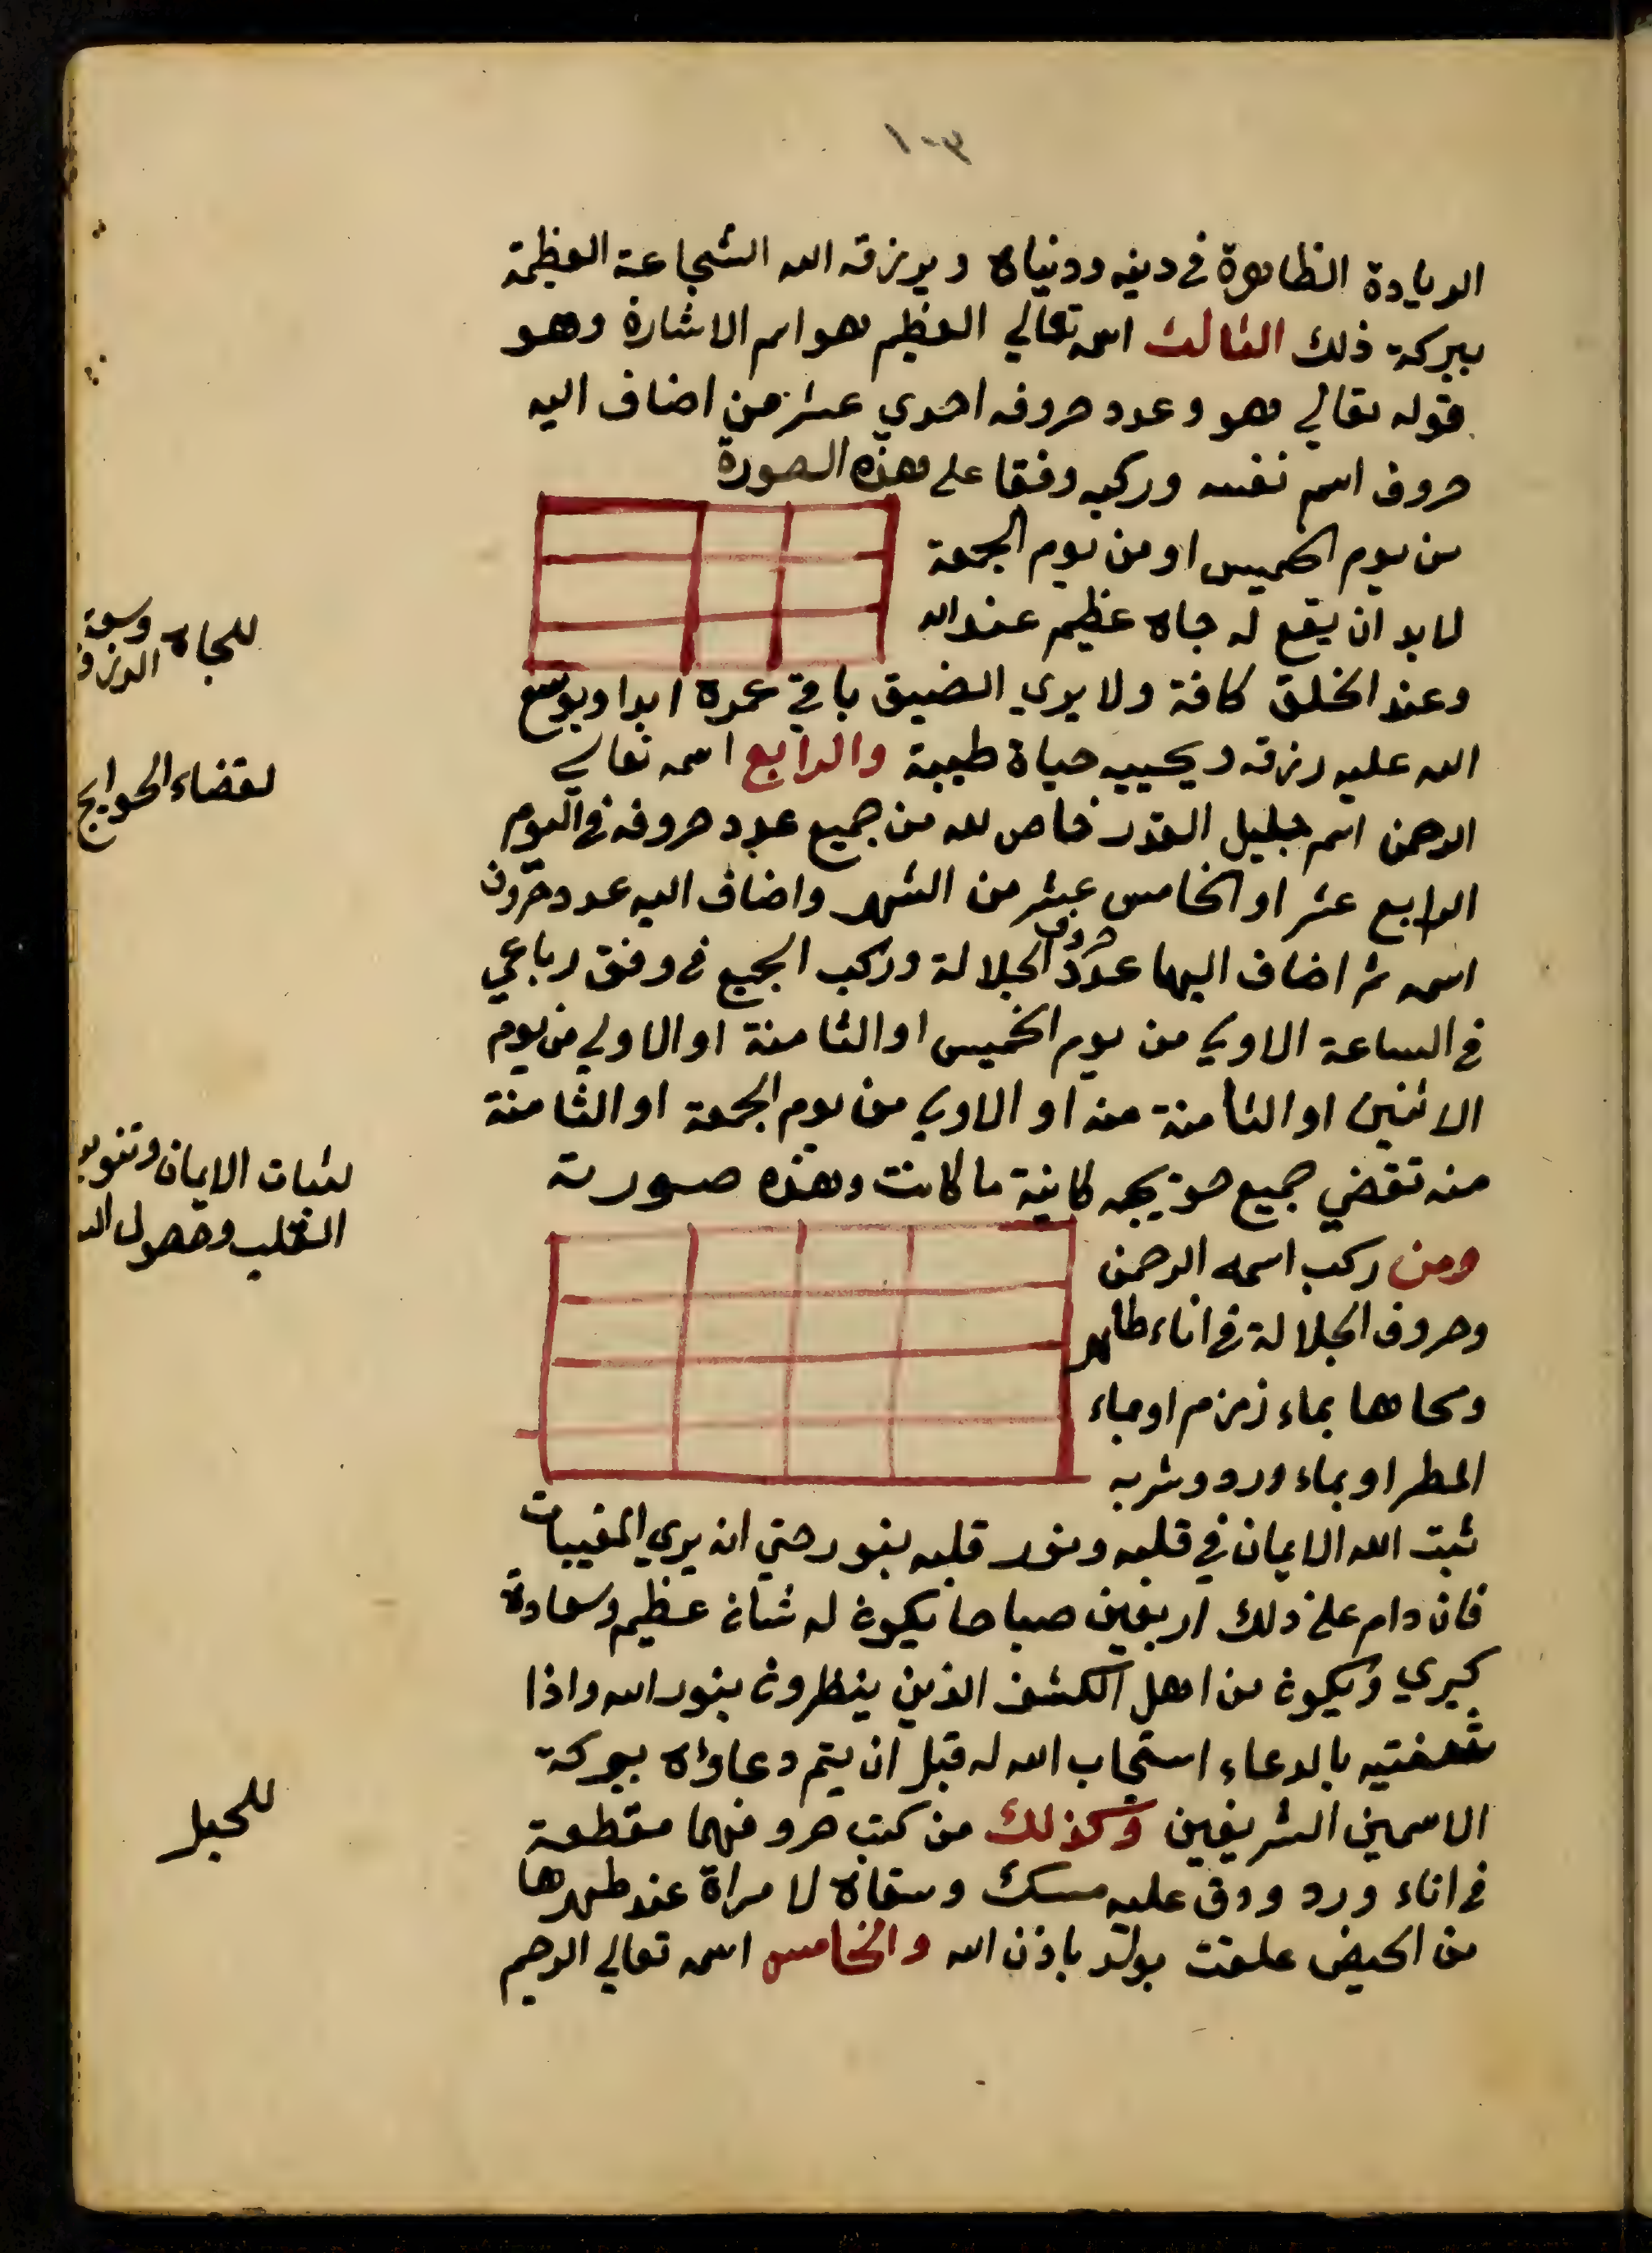 ١٠٣
الريادة الظاهرة في دينه ودنياه ويرزقه الله الشجاعة العظمة
ببركة ذلك الثالث اسمه تعالي العظيم هو اسم الاشارة وهو
قوله تعالي هو وعدد حروفه احدي عشر من اضاف اليه
حروف اسم نفسه وركبه وفقا على هذه الصورة
من يوم الخميس او من يوم الجمعة
لابد ان يقع له جاه عظيم عند الله
وعند الخلق كافة ولا يري الضيق باقي عمره ابدا ويوسع
الله عليه رزقه ويحييه حياة طيبة والرابع اسمه تعالي
الرحمن اسم جليل القدر خاص لله من جميع عدد حروفه في اليوم
الرابع عشر او الخامس عشر من الشهر واضاف اليه عدد حروف
اسمه ثم اضاف اليها عدد حروف الجلالة وركب الجميع في وفق رباعي
في الساعة الاولي من يوم الخميس او الثامنة او الاولي من يوم
الاثنين او الثامنة منه او الاولي من يوم الجمعة او الثامنة
منه تقضي جميع حوايجه كاينة ما كانت وهذه صورته
ومن ركب اسمه الرحمن
وحروف الجلالة في اناء طاهر
ومحاها بماء زمزم او بماء
المطر او بماء ورد وشربه
ثبت الله الايمان في قلبه ونور قلبه بنور حتي انه يري المغيبات
فان دام على ذلك اربعين صباحا يكون له شان عظيم وسعادة
كبري ويكون من اهل الكشف الذين ينظرون بنور الله واذا
شفتيه بالدعاء استجاب الله له قبل ان يتم دعاؤه ببركة
الاسمين الشريفين وكذلك من كتب حروفهما مقطعة
في اناء ورد ودق عليه مسك وسقاه لامراة عند طهرها
من الحيض علقت بولد باذن الله والخامس اسمه تعالي الرحيم
للجاه وسعة
الرزق
لقضاء الحوايج
لثبات الايمان وتنوير
القلب وحصول
للحبل